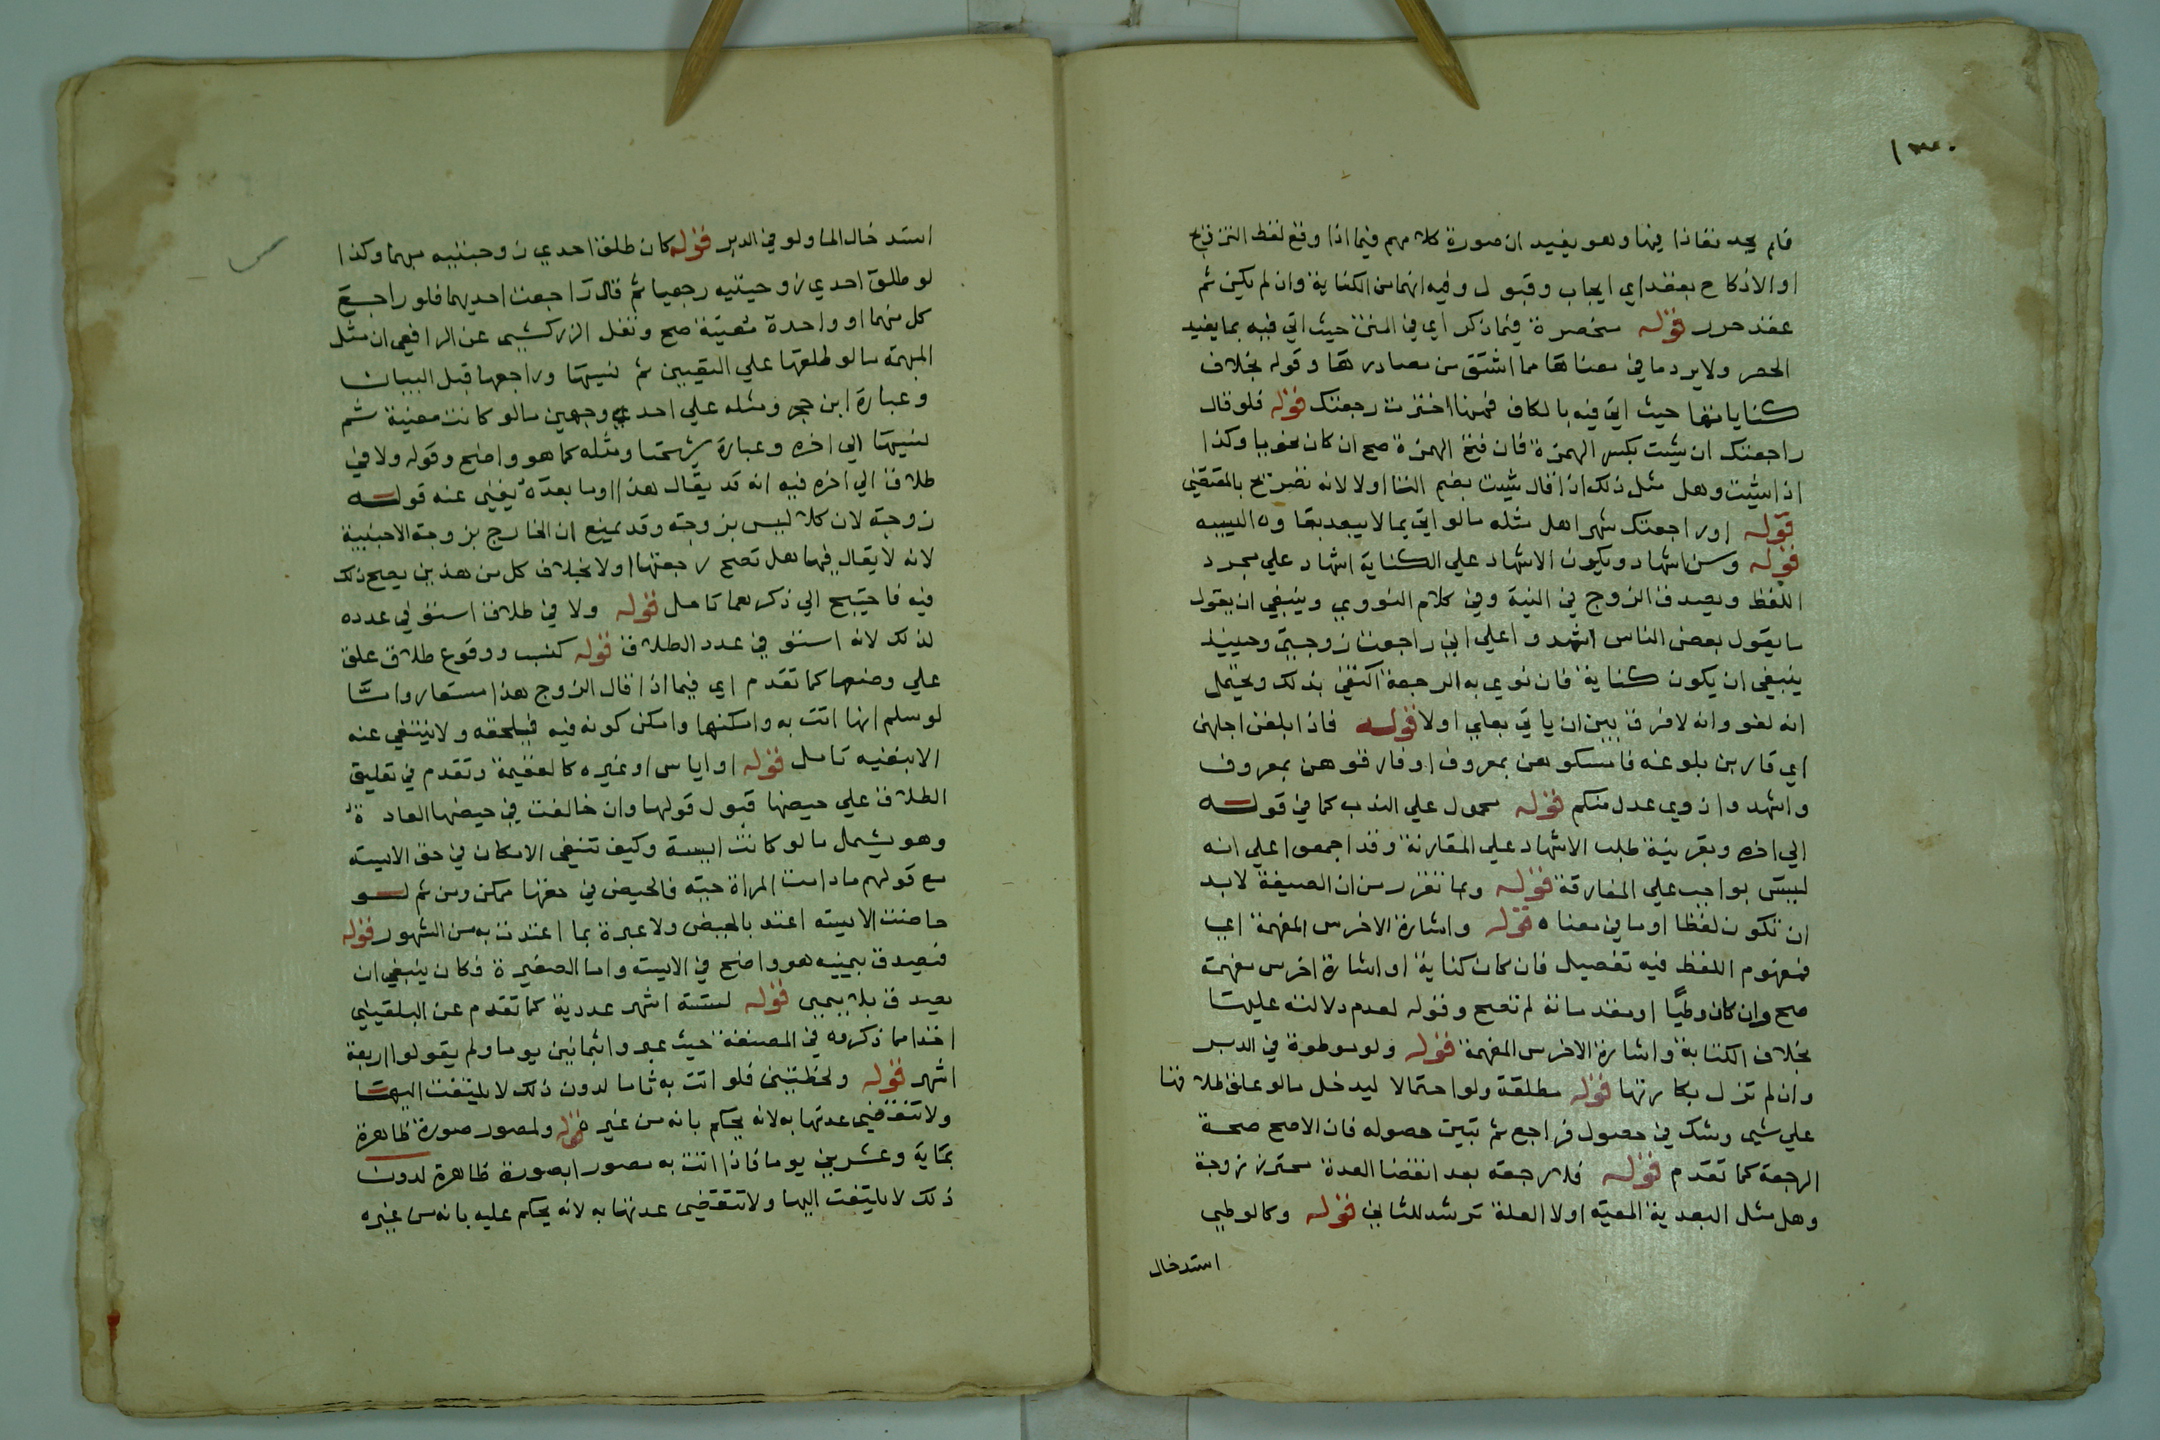 ١٣٤٠
فلم يجد نفاذا فيها وهو يفيد ان صورة كلامهم فيما اذا وقع لفظ التزويج
او الانكاح بعقد اي ايجاب وقبول وفيه انهما من الكناية وان لم يكن ثم
عقد حرر قوله منحصرة فيما ذكر اي في المتن حيث اتي فيه بما يفيد
الحصر ولا يرد ما في معناها مما اشتق من مصادرها وقوله بخلاف
كناياتها حيث اتي فيه بالكاف فمنها اخترت رجعتك قوله فلو قال
راجعتك ان شيت بكسر الهمزة فان فتح الهمزة صح ان كان نحويا وكذا
اذ شيت وهل مثل ذلك اذا قال شيت بضم التا اولا لانه تصريح بالمقتضي
قوله او راجعتك شهرا هل مثله ما لو اتي بما لا يبعد بقاوه اليه
قوله وسن اشهاد ويكون الاشهاد علي الكناية اشهاد علي مجرد
اللفظ ويصدق الزوج في النية وفي كلام النووي وينبغي ان يقول
ما يقول بعض الناس اشهدوا علي اني راجعت زوجتي وحينيذ
ينبغي ان يكون كناية فان نوي به الرجعة اكتفي بذلك ويحتمل
انه لغو وانه لا فرق بين ان ياتي بعلي اولا قوله فاذا بلغن اجلهن
اي قاربن بلوغه فامسكوهن بمعروف او فارقوهن بمعروف
واشهدوا ذوي عدل منكم قوله محمول علي الندب كما في قوله
الي اخره وبقرينة طلب الاشهاد علي المفارقة وقد اجمعوا علي انه
ليس بواجب علي المفارقة قوله وبما تقرر من ان الصيغة لا بد
ان تكون لفظا او ما في معناه قوله واشارة الاخرس المفهمة اي
فمفهوم اللفظ فيه تفصيل فان كان كناية او اشارة اخرس مفهمة
صح وان كان وطيًا او مقدماته لم تصح وقوله لعدم دلالته عليها
بخلاف الكتابة واشارة الاخرس المفهمة قوله ولو موطوة في الدبر
وان لم تزل بكارتها قوله مطلقة ولو احتمالا ليدخل ما لو علق طلاقها
علي شي وشك في حصول فراجع ثم تبين حصوله فان الاصح صحة
الرجعة كما تقدم قوله فلا رجعة بعد انقضا العدة محترز زوجة
وهل مثل البعدية المعيه اولا العلة ترشد للثاني قوله وكالوطي
استدخال
استدخال الما ولو في الدبر قوله كان طلق احدي زوجتيه مبهما وكذا
لو طلق احدي زوجتيه رجعيا ثم قال راجعت احديهما فلو راجع
كل منهما او واحدة معينة صح ونقل الزركشي عن الرافعي ان مثل
المبهمة ما لو طلقها علي التعيين ثم نسيها وراجعها قبل البيان
وعبارة ابن حجر ومثله علي احدي وجهين ما لو كانت معينة ثم
نسيها الي اخره وعبارة شرحنا ومثله كما هو واضح وقوله ولا في
طلاق الي اخره فيه انه قد يقال هذا وما بعده يغني عنه قوله
زوجة لان كلا ليس بزوجته وقد يمنع ان الخارج بزوجة الاجنبية
لانه لا يقال فيها هل تصح رجعتها اولا بخلاف كل من هذين يصح ذلك
فيه فاحتيج الي ذكرهما تامل قوله ولا في طلاق استوفي عدده
لذلك لانه استوفي عدد الطلاق قوله كنسب ووقوع طلاق علق
علي وضعها كما تقدم اي فيما اذا قال الزوج هذا مستعار واما
لو سلم انها اتت به وامكنها وامكن كونه فيه فيلحقه ولا ينتفي عنه
الا بنفيه تامل قوله او اياس او غيره كالعقيمة وتقدم في تعليق
الطلاق علي حيضها قبول قولها وان خالفت في حيضها العادة
وهو يشمل ما لو كانت ايسة وكيف تنتفي الامكان في حق الايسه
مع قولهم ما دامت المراة حيه فالحيض في حقها ممكن ومن ثم لو
حاضت الايسه اعتد بالحيض ولا عبرة بما اعتدت به من الشهور قوله
فيصدق بيمينه هو واضح في الايسه واما الصغيرة فكان ينبغي ان
يصدق بلا يمين قوله لستة اشهر عددية كما تقدم عن البلقيني
اخذا مما ذكروه في المضغة حيث عبروا ثمانين يوما ولم يقولوا اربعة
اشهر قوله ولحظتين فلو اتت به تاما لدون ذلك لا يلتفت اليها
ولا تنقضي عدتها به لانه يحكم بانه من غيره قوله ولمصور صورة ظاهرة
بماية وعشرين يوما فاذا اتت به مصورا بصورة ظاهرة لدون
ذلك لا يلتفت اليها ولا تنقضي عدتها به لانه يحكم عليه بانه من غيره